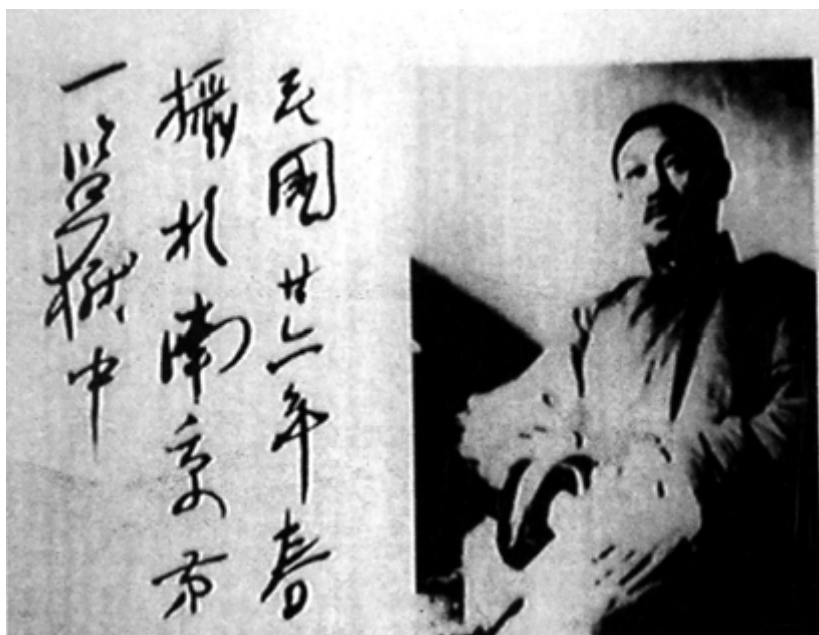 民國廿六年春
攝於南京市
一監獄中